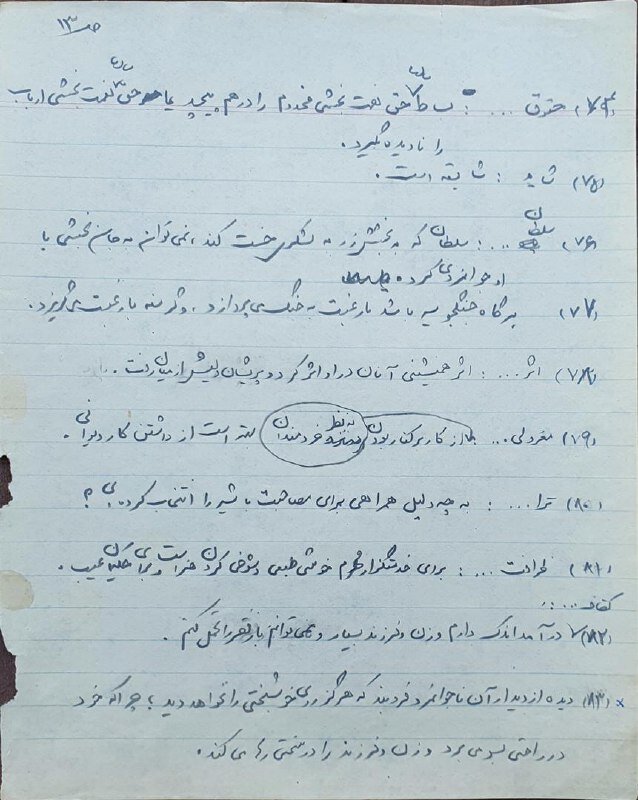 ص ۱۳
۷۴) حقوق ... : بساط حق نعمت بخشی مخدوم را درهم پیچد یا حق نعمت بخشی ارباب
را نادیده گیرد.
۷۵) شاید : شایسته است.
۷۶) سلطان ... : سلطان که به بخشش زر به لشکر خست کند، نمی‌توان به جان بخشی با
او جوانمردی کرده
۷۷) هرگاه جنگجو سیر باشد با رغبت به جنگ می‌پردازد، وگرسنه با رغبت می‌گریزد.
۷۸) اثر ... : اثر همنشینی آنان در او اثر کرد و پریشان از میان رفت.
۷۹) معزولی ... از کار برکنار بودن به نظر خردمندان بهتر است از داشتن کار دیوانی.
۸۰) ترا ... : به چه دلیل همراهی برای مصاحبت با شیر را انتخاب کرده‌یی؟
۸۱) ظرافت ... : برای خدمتگزار محرم خوش طبعی و شوخی کردن هنر است و برای حکیمان عیب.
کفاف ... :
۸۲) درآمد اندک دارم و زن و فرزند بسیار و نمی‌توانم بار فقر را تحمل کنم.
× ۸۳) دیده از دیدار آن ناجوانمرد فروبند که هرگز روی خوشبختی را نخواهد دید؛ چرا که خود
در راحتی بسر می برد و زن و فرزند را در سختی رها می کند.